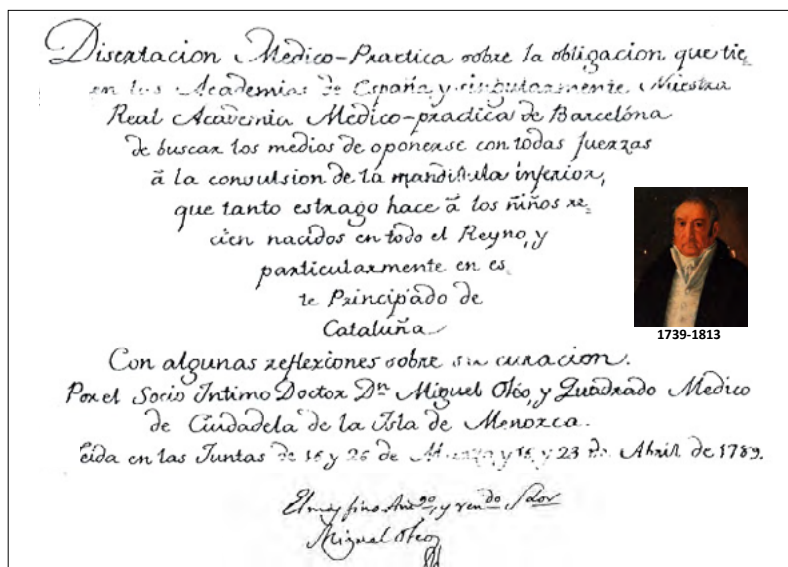 Disertacion Medico-Practica sobre la obligacion que tie,
en las Academias de España y singularmente Nuestra
Real Academia Medico-practica de Barcelóna
de buscar los medios de oponerse con todas fuerzas
â la convulsion de la mandibula inferior,
que tanto estrago hace â los niños re,
cien nacidos en todo el Reyno, y
particularmente en es,
te Principado de
Cataluña
1739-1813
Con algunas reflexiones sobre su curacion.
Por el Socio Intimo Doctor Dn Miguel Oléo, y Quadrado Medico
de Ciudadela de la Isla de Menorca.
eida en las Juntas de 16 y 26 de Marzo y 16 y 23 de Abril de 1789.
El muy fino Amgo, y rendo Sdor
Miguel Oleo